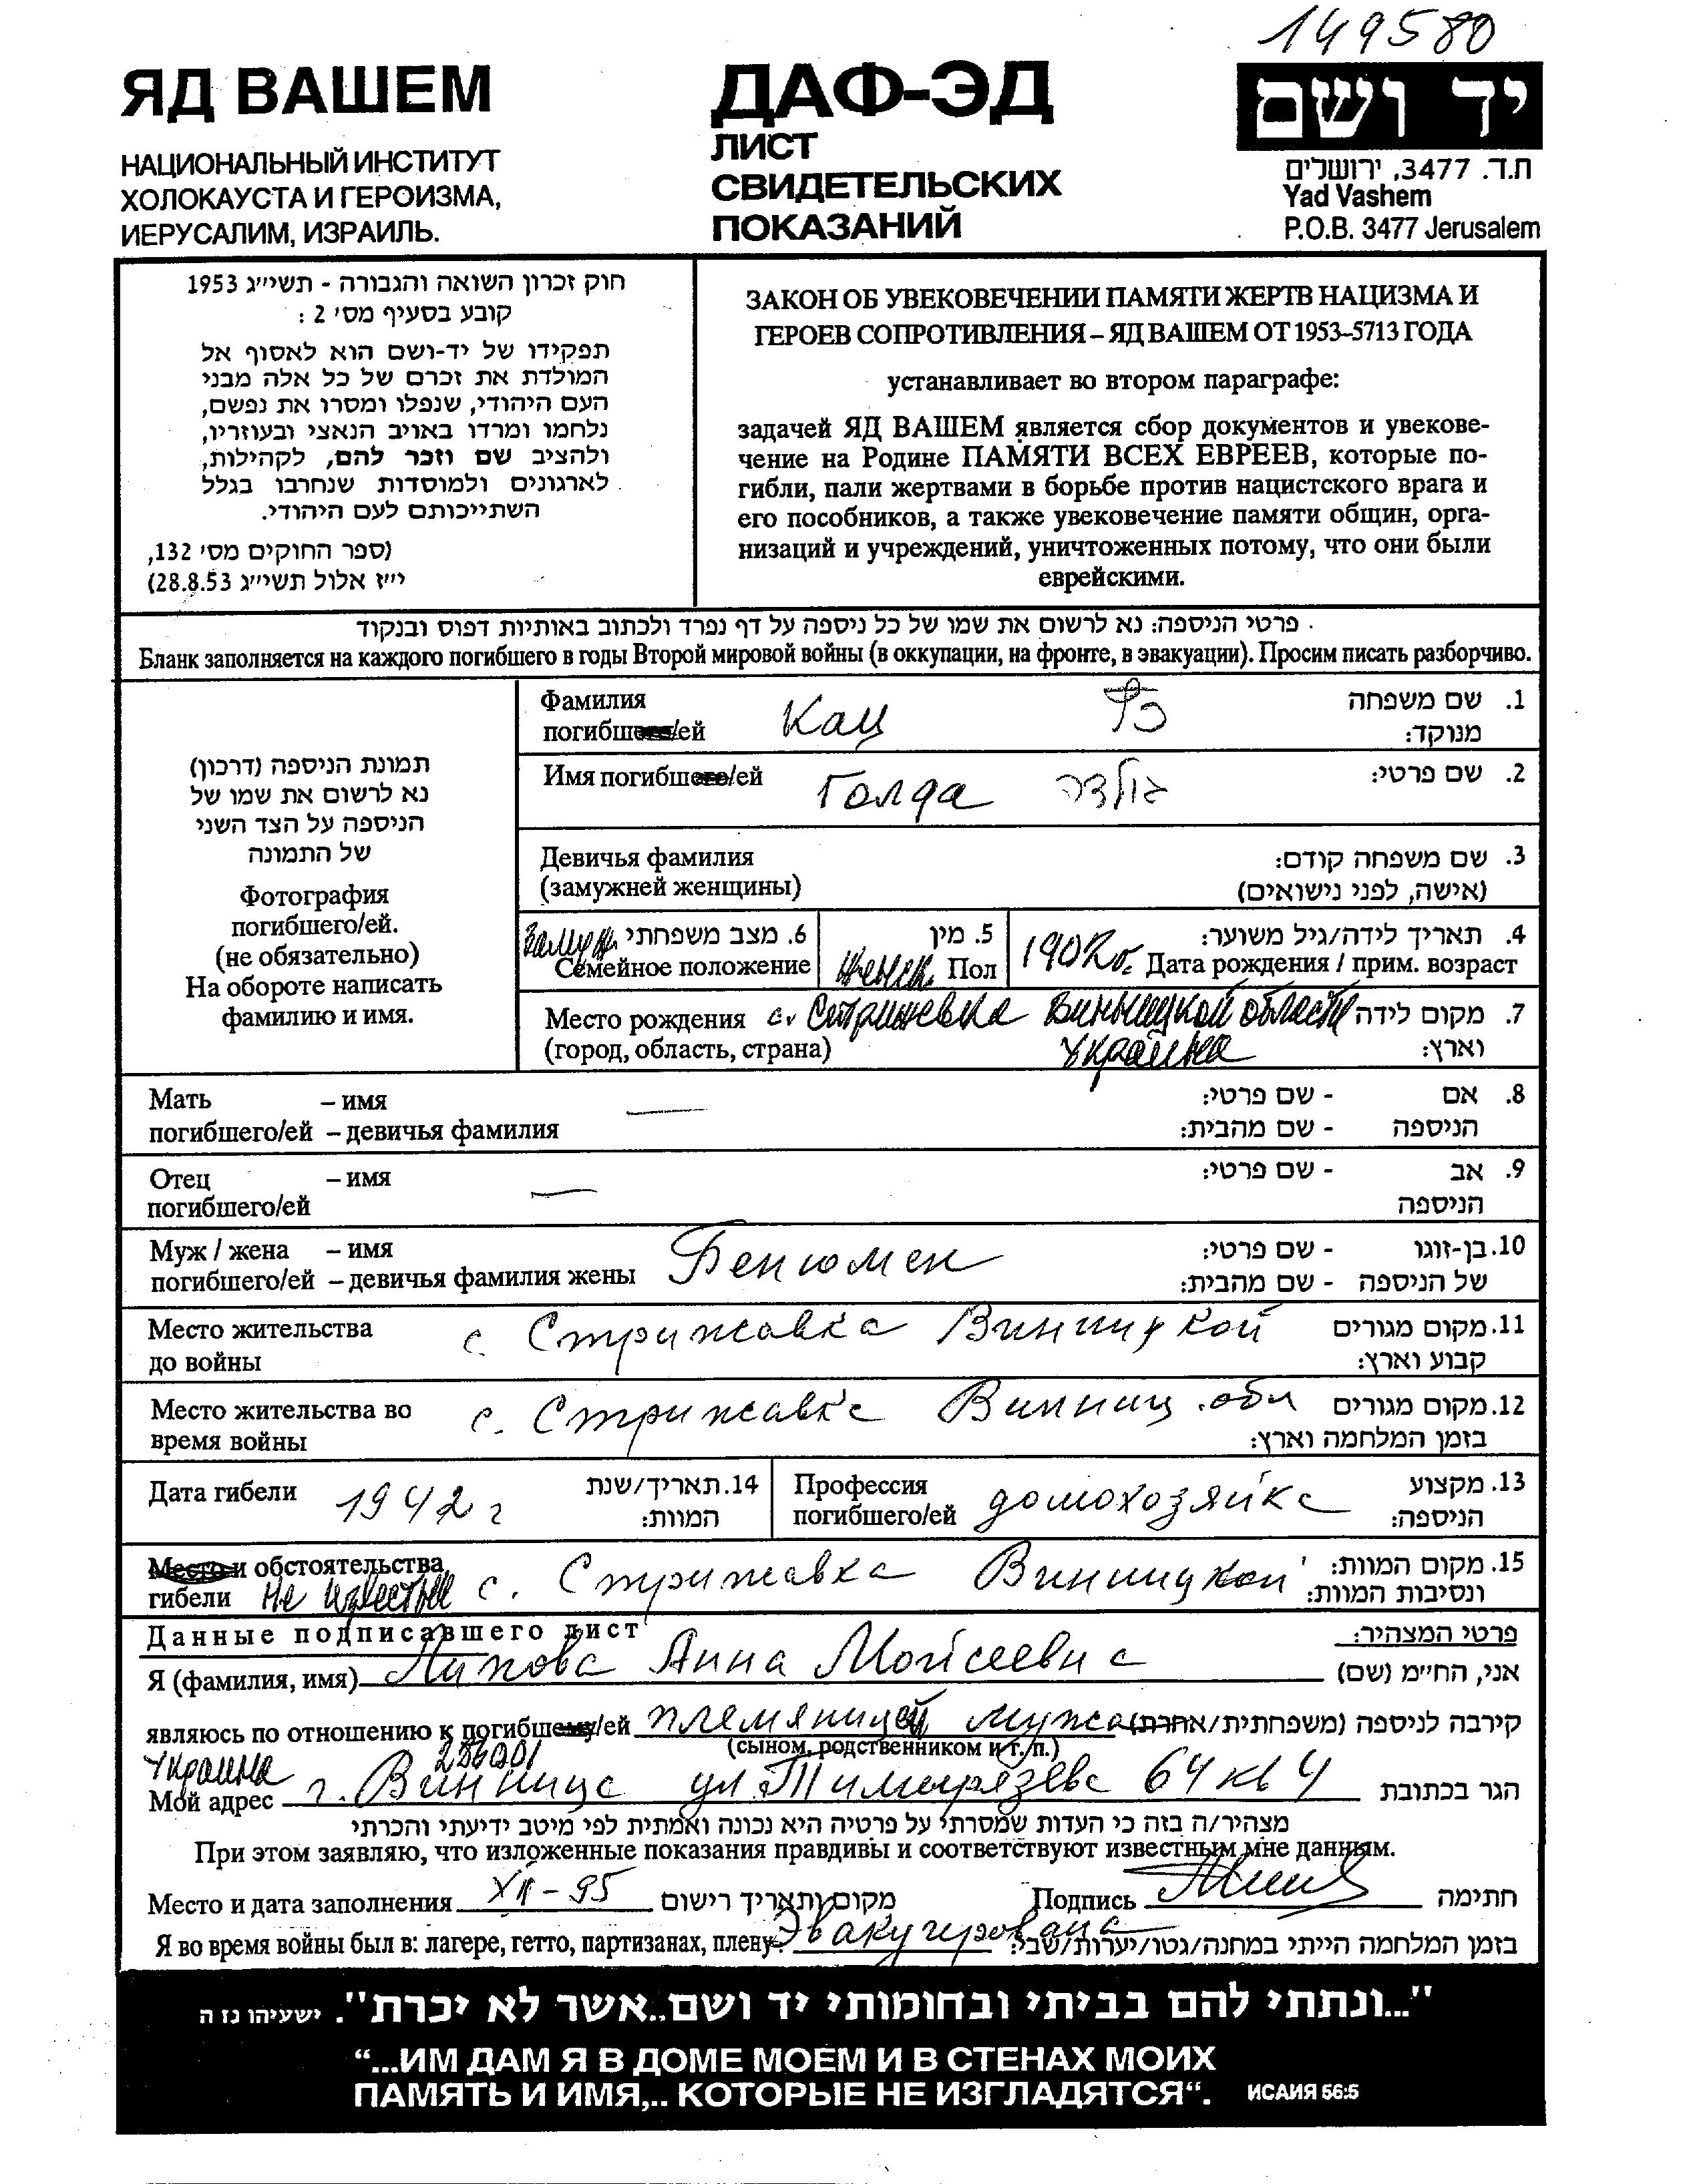 149580
ЯД ВАШЕМ
НАЦИОНАЛЬНЫЙ ИНСТИТУТ
ХОЛОКАУСТА И ГЕРОИЗМА,
ИЕРУСАЛИМ, ИЗРАИЛЬ.
ДАФ-ЭД
ЛИСТ
СВИДЕТЕЛЬСКИХ
ПОКАЗАНИЙ
יד ושם
ת.ד. 3477, ירושלים
Yad Vashem
P.O.B. 3477 Jerusalem
חוק זכרון השואה והגבורה - תשי״ג 1953
קובע בסעיף מס׳ 2 :
תפקידו של יד-ושם הוא לאסוף אל
המולדת את זכרם של כל אלה מבני
העם היהודי, שנפלו ומסרו את נפשם,
נלחמו ומרדו באויב הנאצי ובעוזריו,
ולהציב שם וזכר להם, לקהילות,
לארגונים ולמוסדות שנחרבו בגלל
השתייכותם לעם היהודי.
(ספר החוקים מס׳ 132,
י״ז אלול תשי״ג 28.8.53)
ЗАКОН ОБ УВЕКОВЕЧЕНИИ ПАМЯТИ ЖЕРТВ НАЦИЗМА И
ГЕРОЕВ СОПРОТИВЛЕНИЯ – ЯД ВАШЕМ ОТ 1953–5713 ГОДА
устанавливает во втором параграфе:
задачей ЯД ВАШЕМ является сбор документов и увекове-
чение на Родине ПАМЯТИ ВСЕХ ЕВРЕЕВ, которые по-
гибли, пали жертвами в борьбе против нацистского врага и
его пособников, а также увековечение памяти общин, орга-
низаций и учреждений, уничтоженных потому, что они были
еврейскими.
פרטי הניספה: נא לרשום את שמו של כל ניספה על דף נפרד ולכתוב באותיות דפוס ובנקוד
Бланк заполняется на каждого погибшего в годы Второй мировой войны (в оккупации, на фронте, в эвакуации). Просим писать разборчиво.
תמונת הניספה (דרכון)
נא לרשום את שמו של
הניספה על הצד השני
של התמונה
Фотография
погибшего/ей.
(не обязательно)
На обороте написать
фамилию и имя.
Фамилия Кац כץ 1. שם משפחה
погибшего/ей מנוקד:
Имя погибшего/ей Голда גולדה 2. שם פרטי:
Девичья фамилия 3. שם משפחה קודם:
(замужней женщины) (אישה, לפני נישואים)
замужн. 6. מצב משפחתי 5. מין 1902г. 4. תאריך לידה/גיל משוער:
Семейное положение женск. Пол Дата рождения / прим. возраст
Место рождения с. Стрижевка Винницкой области 7. מקום לידה
(город, область, страна) Украина וארץ:
Мать – имя — 8. אם - שם פרטי:
погибшего/ей – девичья фамилия הניספה - שם מהבית:
Отец – имя — 9. אב - שם פרטי:
погибшего/ей הניספה
Муж / жена – имя Бенюмен 10. בן-זוגו - שם פרטי:
погибшего/ей – девичья фамилия жены של הניספה - שם מהבית:
Место жительства с. Стрижавка Винницкой 11. מקום מגורים
до войны קבוע וארץ:
Место жительства во с. Стрижавка Винниц. обл 12. מקום מגורים
время войны בזמן המלחמה וארץ:
Дата гибели 1942 г 14. תאריך/שנת
המוות:
Профессия домохозяйка 13. מקצוע
погибшего/ей הניספה:
Место и обстоятельства с. Стрижавка Винницкой 15. מקום המוות:
гибели не известны ונסיבות המוות:
Данные подписавшего лист פרטי המצהיר:
Я (фамилия, имя) Липова Анна Мойсеевна אני, החי״מ (שם)
являюсь по отношению к погибшему/ей племяницей мужа קירבה לניספה (משפחתית/אחרת)
(сыном, родственником и т. п.)
Украина 286001
Мой адрес г. Винница ул Тимирязева 64 кв 4 הגר בכתובת
מצהיר/ה בזה כי העדות שמסרתי על פרטיה היא נכונה ואמתית לפי מיטב ידיעתי והכרתי
При этом заявляю, что изложенные показания правдивы и соответствуют известным мне данным.
Место и дата заполнения XII-95 מקום ותאריך רישום Подпись חתימה
Я во время войны был в: лагере, гетто, партизанах, плену: Эвакуирована בזמן המלחמה הייתי במחנה/גטו/יערות/שבי:
"...ונתתי להם בביתי ובחומותי יד ושם..אשר לא יכרת". ישעיהו נז ה
“...ИМ ДАМ Я В ДОМЕ МОЕМ И В СТЕНАХ МОИХ
ПАМЯТЬ И ИМЯ,.. КОТОРЫЕ НЕ ИЗГЛАДЯТСЯ“. ИСАИЯ 56:5